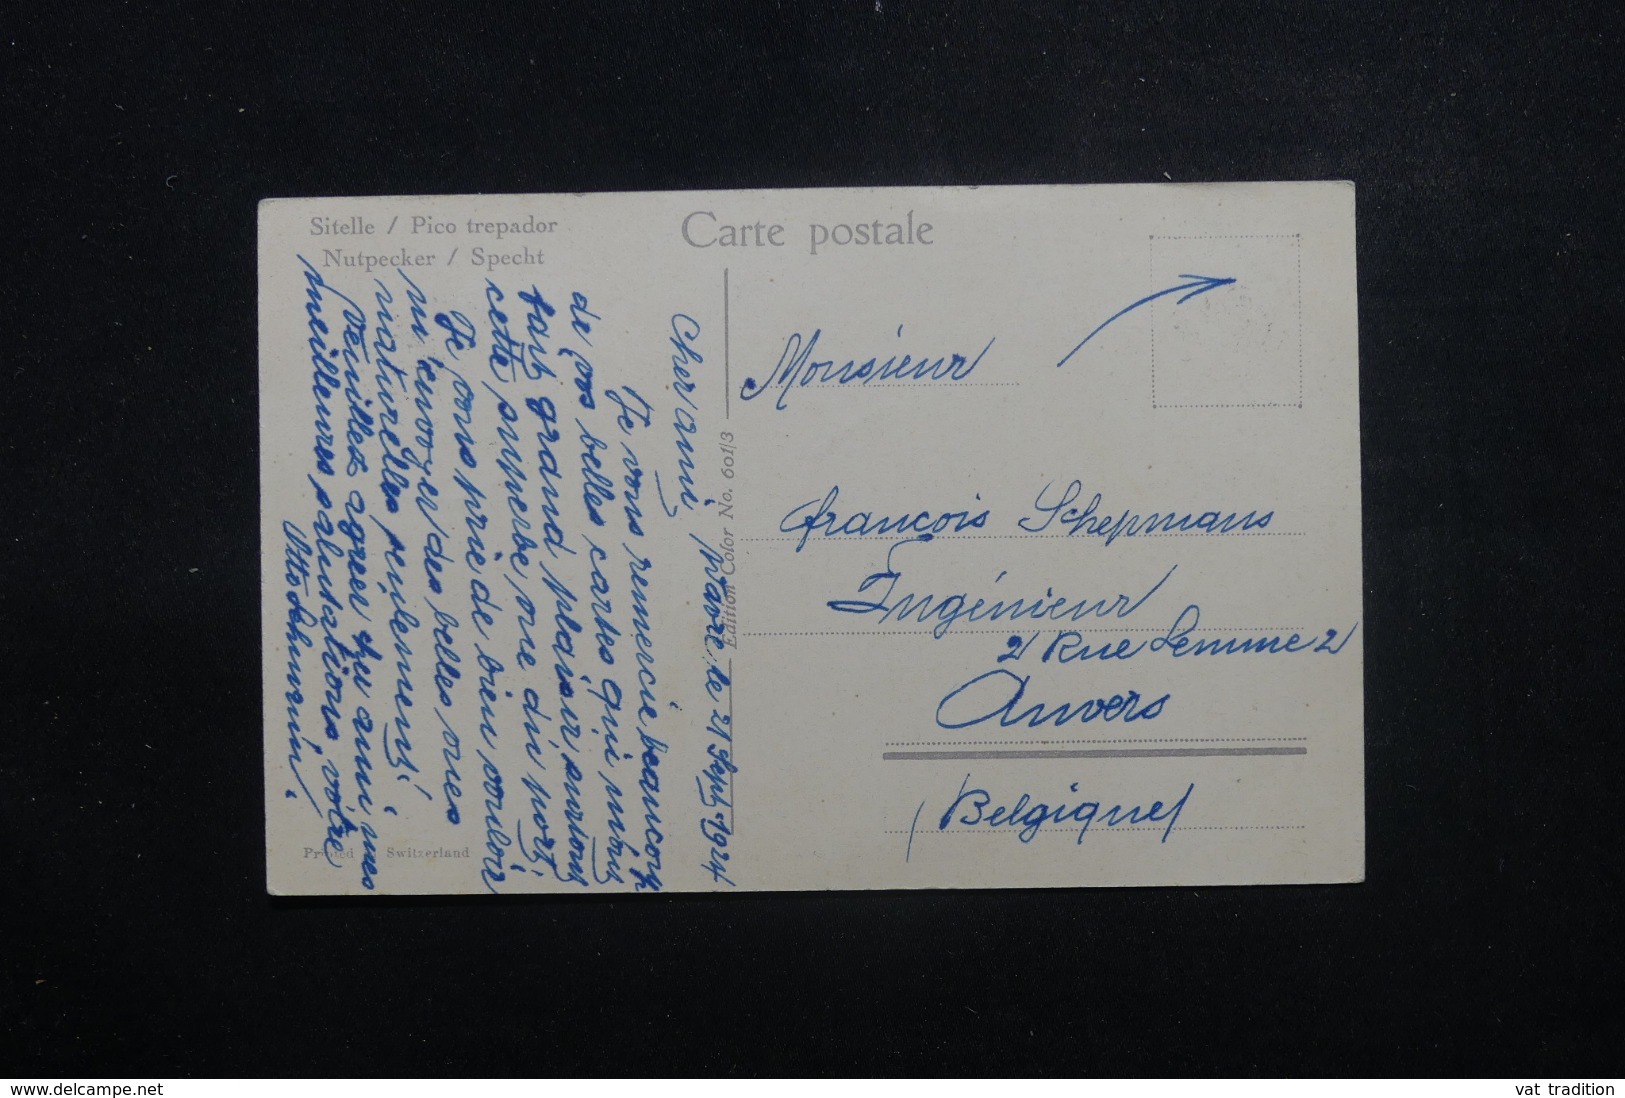 Sitelle / Pico trepador
Nutpecker / Specht
Carte postale
le 21 Sept. 1924
Cher ami,
Je vous remercie beaucoup
de vos belles cartes qui m'ont
fait grand plaisir surtout
cette superbe vue du port.
Je vous prie de bien vouloir
m'envoyer des belles vues
naturelles seulement.
Veuillez agréer cher ami mes
meilleures salutations votre
Otto
Edition Color No. 601/3
Printed Switzerland
Monsieur
François Schepmans
Ingénieur
2 Rue Lemme 2
Anvers
(Belgique)
www.delcampe.net
vat tradition